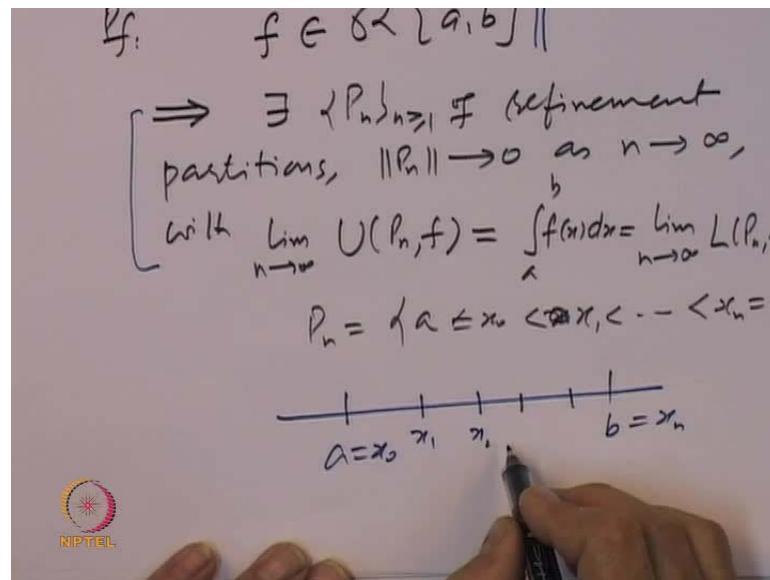 Pf: f ∈ R [a,b] ||
⟹ ∃ {Pₙ}ₙ≥₁ of refinement
partitions, ||Pₙ|| → 0 as n → ∞,
with lim n→∞ U(Pₙ, f) = ∫ₐᵇ f(x)dx = lim n→∞ L(Pₙ,
Pₙ = { a = x₀ < x₁ < -- < xₙ =
a=x₀ x₁ x. b = xₙ
NPTEL